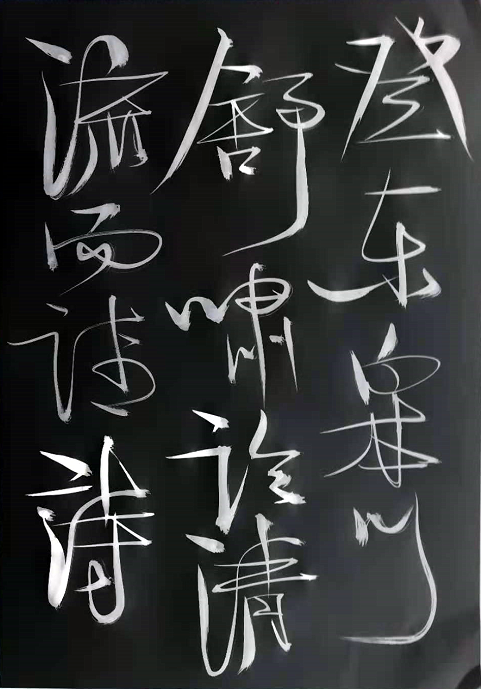 登东皋以
舒啸临清
流而诗